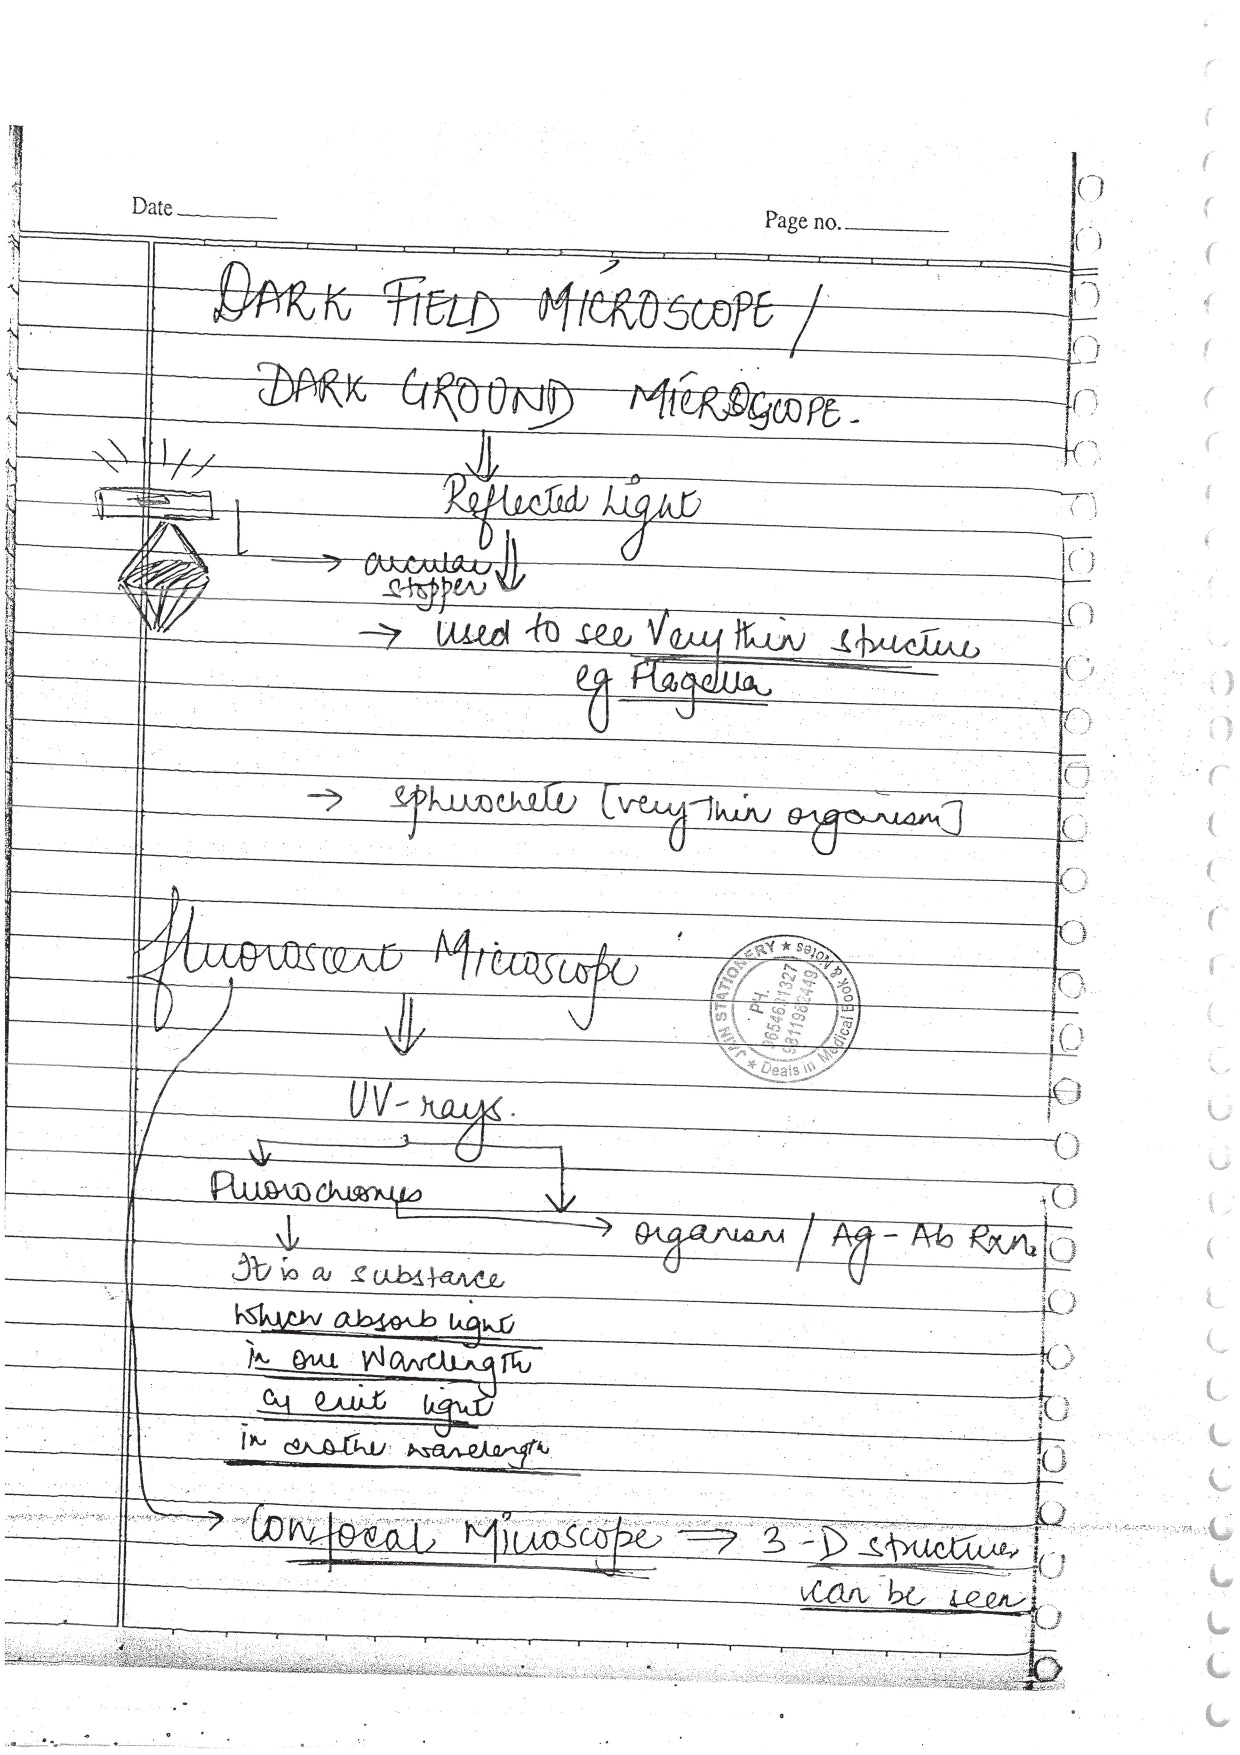 Date
Page no.
DARK FIELD MICROSCOPE /
DARK GROUND MICROSCOPE.
Reflected Light
→ circular
stopper
→ used to see Very thin structure
eg Flagella
→ sphirochete [very thin organism]
fluoroscent Microscope
JAIN STATIONERY ★ Books & Notes
PH.
9811982449
★ Deals in Medical Book
UV-rays.
Fluorochromes
→ organism / Ag - Ab Rxn.
It is a substance
which absorb light
in one wavelength
& emit light
in another wavelength
→ Confocal Microscope ⇒ 3-D structures
can be seen